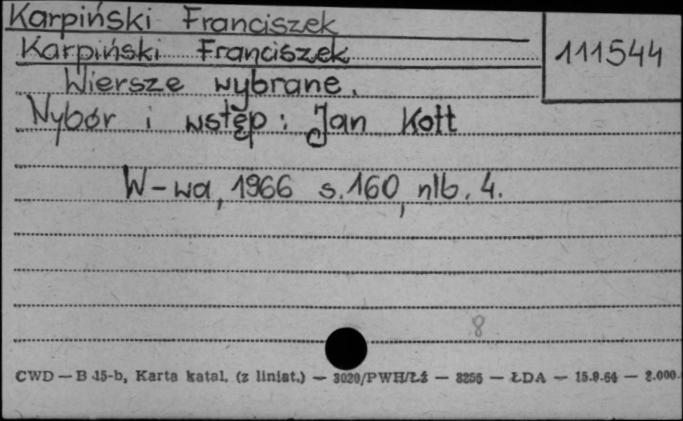 Karpiński Franciszek
111544
Karpiński Franciszek
Wiersze wybrane.
Wybór i wstęp: Jan Kott
W-wa, 1966 s. 160, nlb. 4.
8
CWD — B 15-b, Karta katal. (z liniat.) — 3020/PWH/Łź — 3256 — ŁDA — 15.9.64 — 2.000.